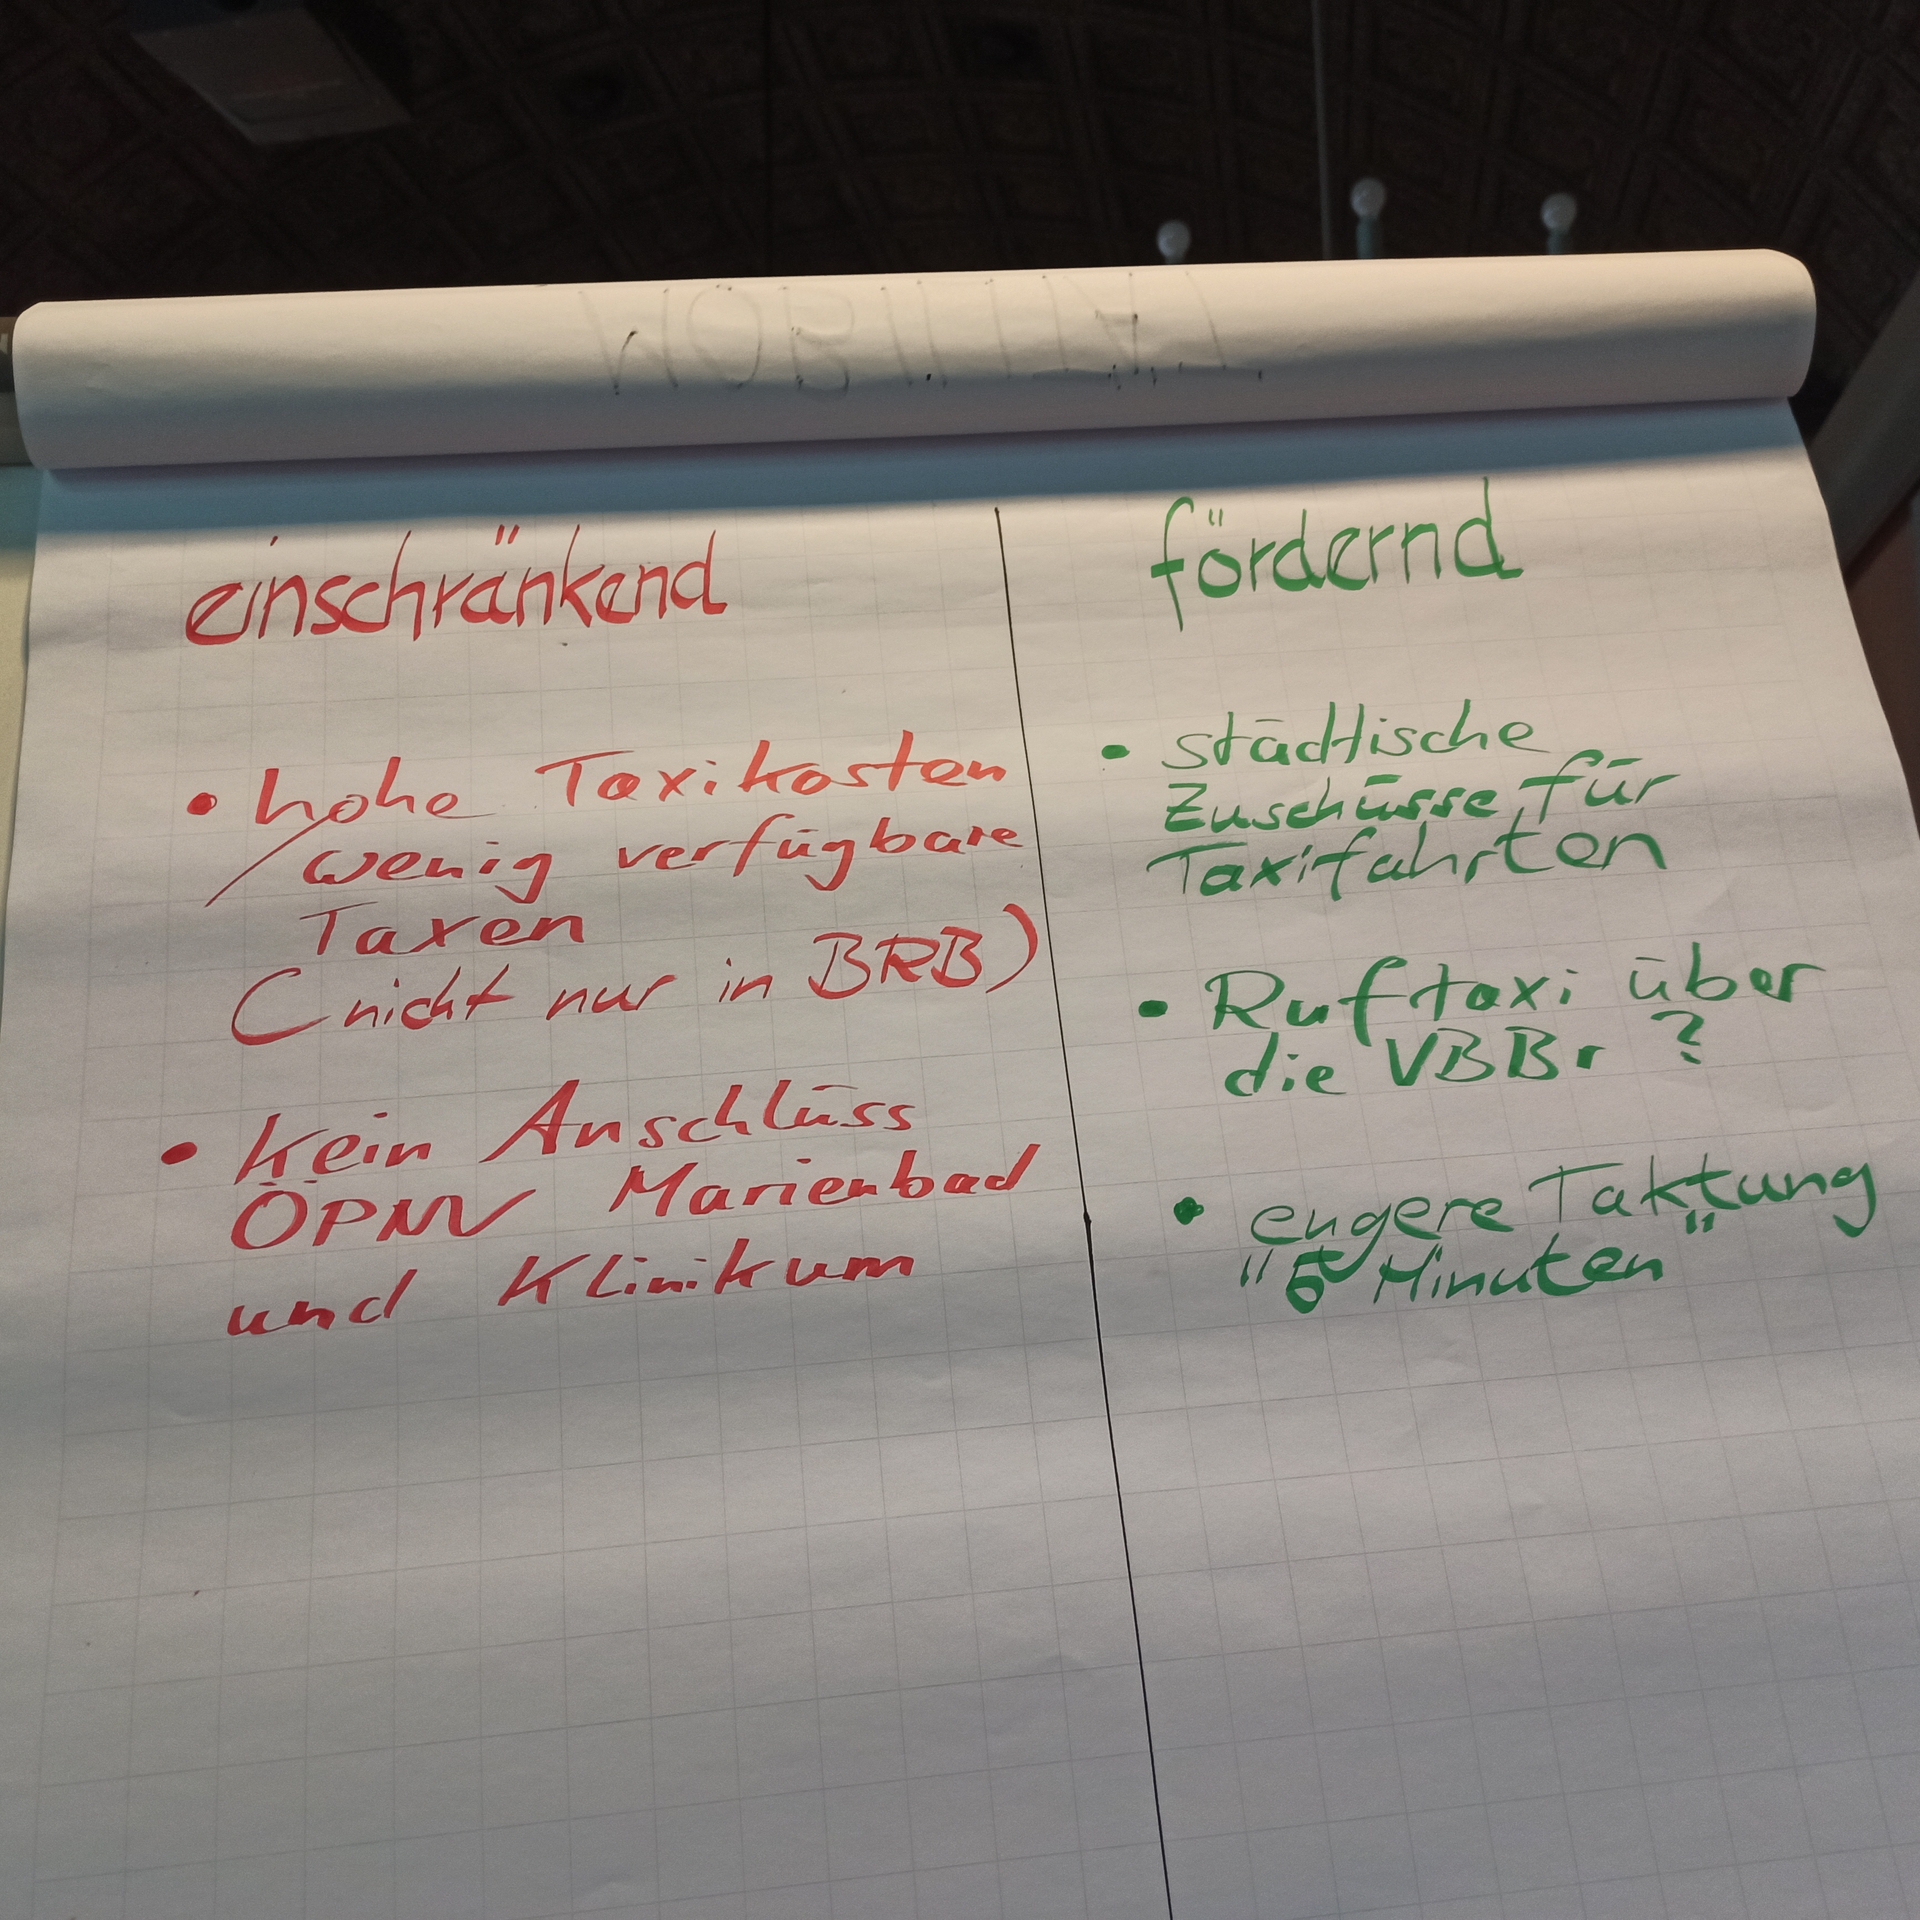 einschränkend
hohe Taxikosten
/ wenig verfügbare
Taxen
(nicht nur in BRB)
kein Anschluss
ÖPNV Marienbad
und Klinikum
fördernd
städtische
Zuschüsse für
Taxifahrten
Ruftaxi über
die VBBr ?
engere Taktung
"5 Minuten"